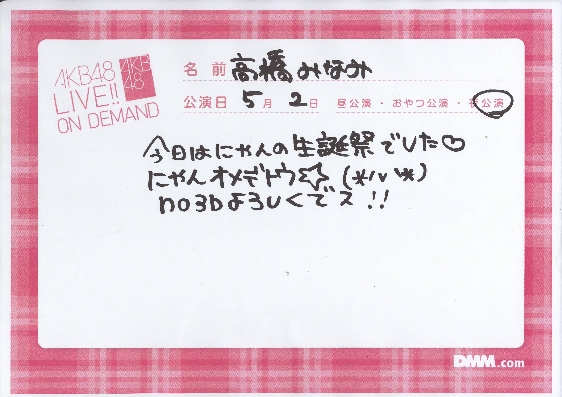 AKB48
LIVE!!
ON DEMAND
AKB
48
名前 高橋みなみ
公演日 5月2日 昼公演・おやつ公演・夜公演
今日はにゃんの生誕祭でした♡
にゃんオメデトウ☆(*ノvヽ*)
no3bよろしくでス!!
DMM.com